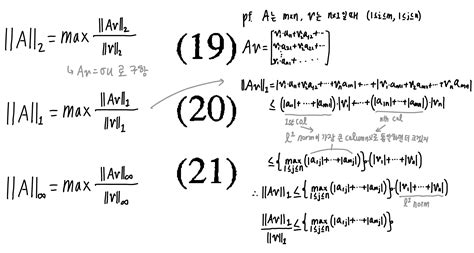 ||A||₂ = max ||Av||₂ / ||v||₂ (19)
↳ Av = σu 로 구함
||A||₁ = max ||Av||₁ / ||v||₁ (20)
||A||∞ = max ||Av||∞ / ||v||∞ (21)
pf. A는 m×n, v는 n×1일 때 (1≤i≤m, 1≤j≤n)
Av = [v₁·a₁₁+v₂a₁₂+⋯
v₁·a₂₁+v₂a₂₂+⋯
v₁·a₃₁+⋯]
||Av||₁ = |v₁·a₁₁+v₂a₁₂+⋯+vₙa₁ₙ|+⋯+|v₁·aₘ₁+v₂aₘ₂+⋯+vₙaₘₙ|
≤ (|a₁₁|+⋯+|aₘ₁|)·|v₁|+⋯+(|a₁ₙ|+⋯+|aₘₙ|)·|vₙ|
1st col nth col
l¹ norm이 가장 큰 column으로 통일하면 더 크겠지
≤ {max 1≤j≤n (|a₁ⱼ|+⋯+|aₘⱼ|)}·(|v₁|+⋯+|vₙ|)
∴ ||Av||₁ ≤ {max 1≤j≤n (|a₁ⱼ|+⋯+|aₘⱼ|)}·(|v₁|+⋯+|vₙ|)
l¹ norm
||Av||₁ / ||v||₁ ≤ {max 1≤j≤n (|a₁ⱼ|+⋯+|aₘⱼ|)}